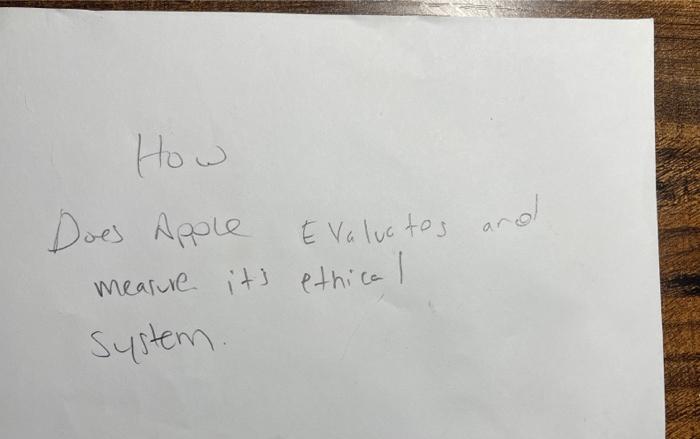 How
Does Apple Evaluates and
measure it's ethical
system.